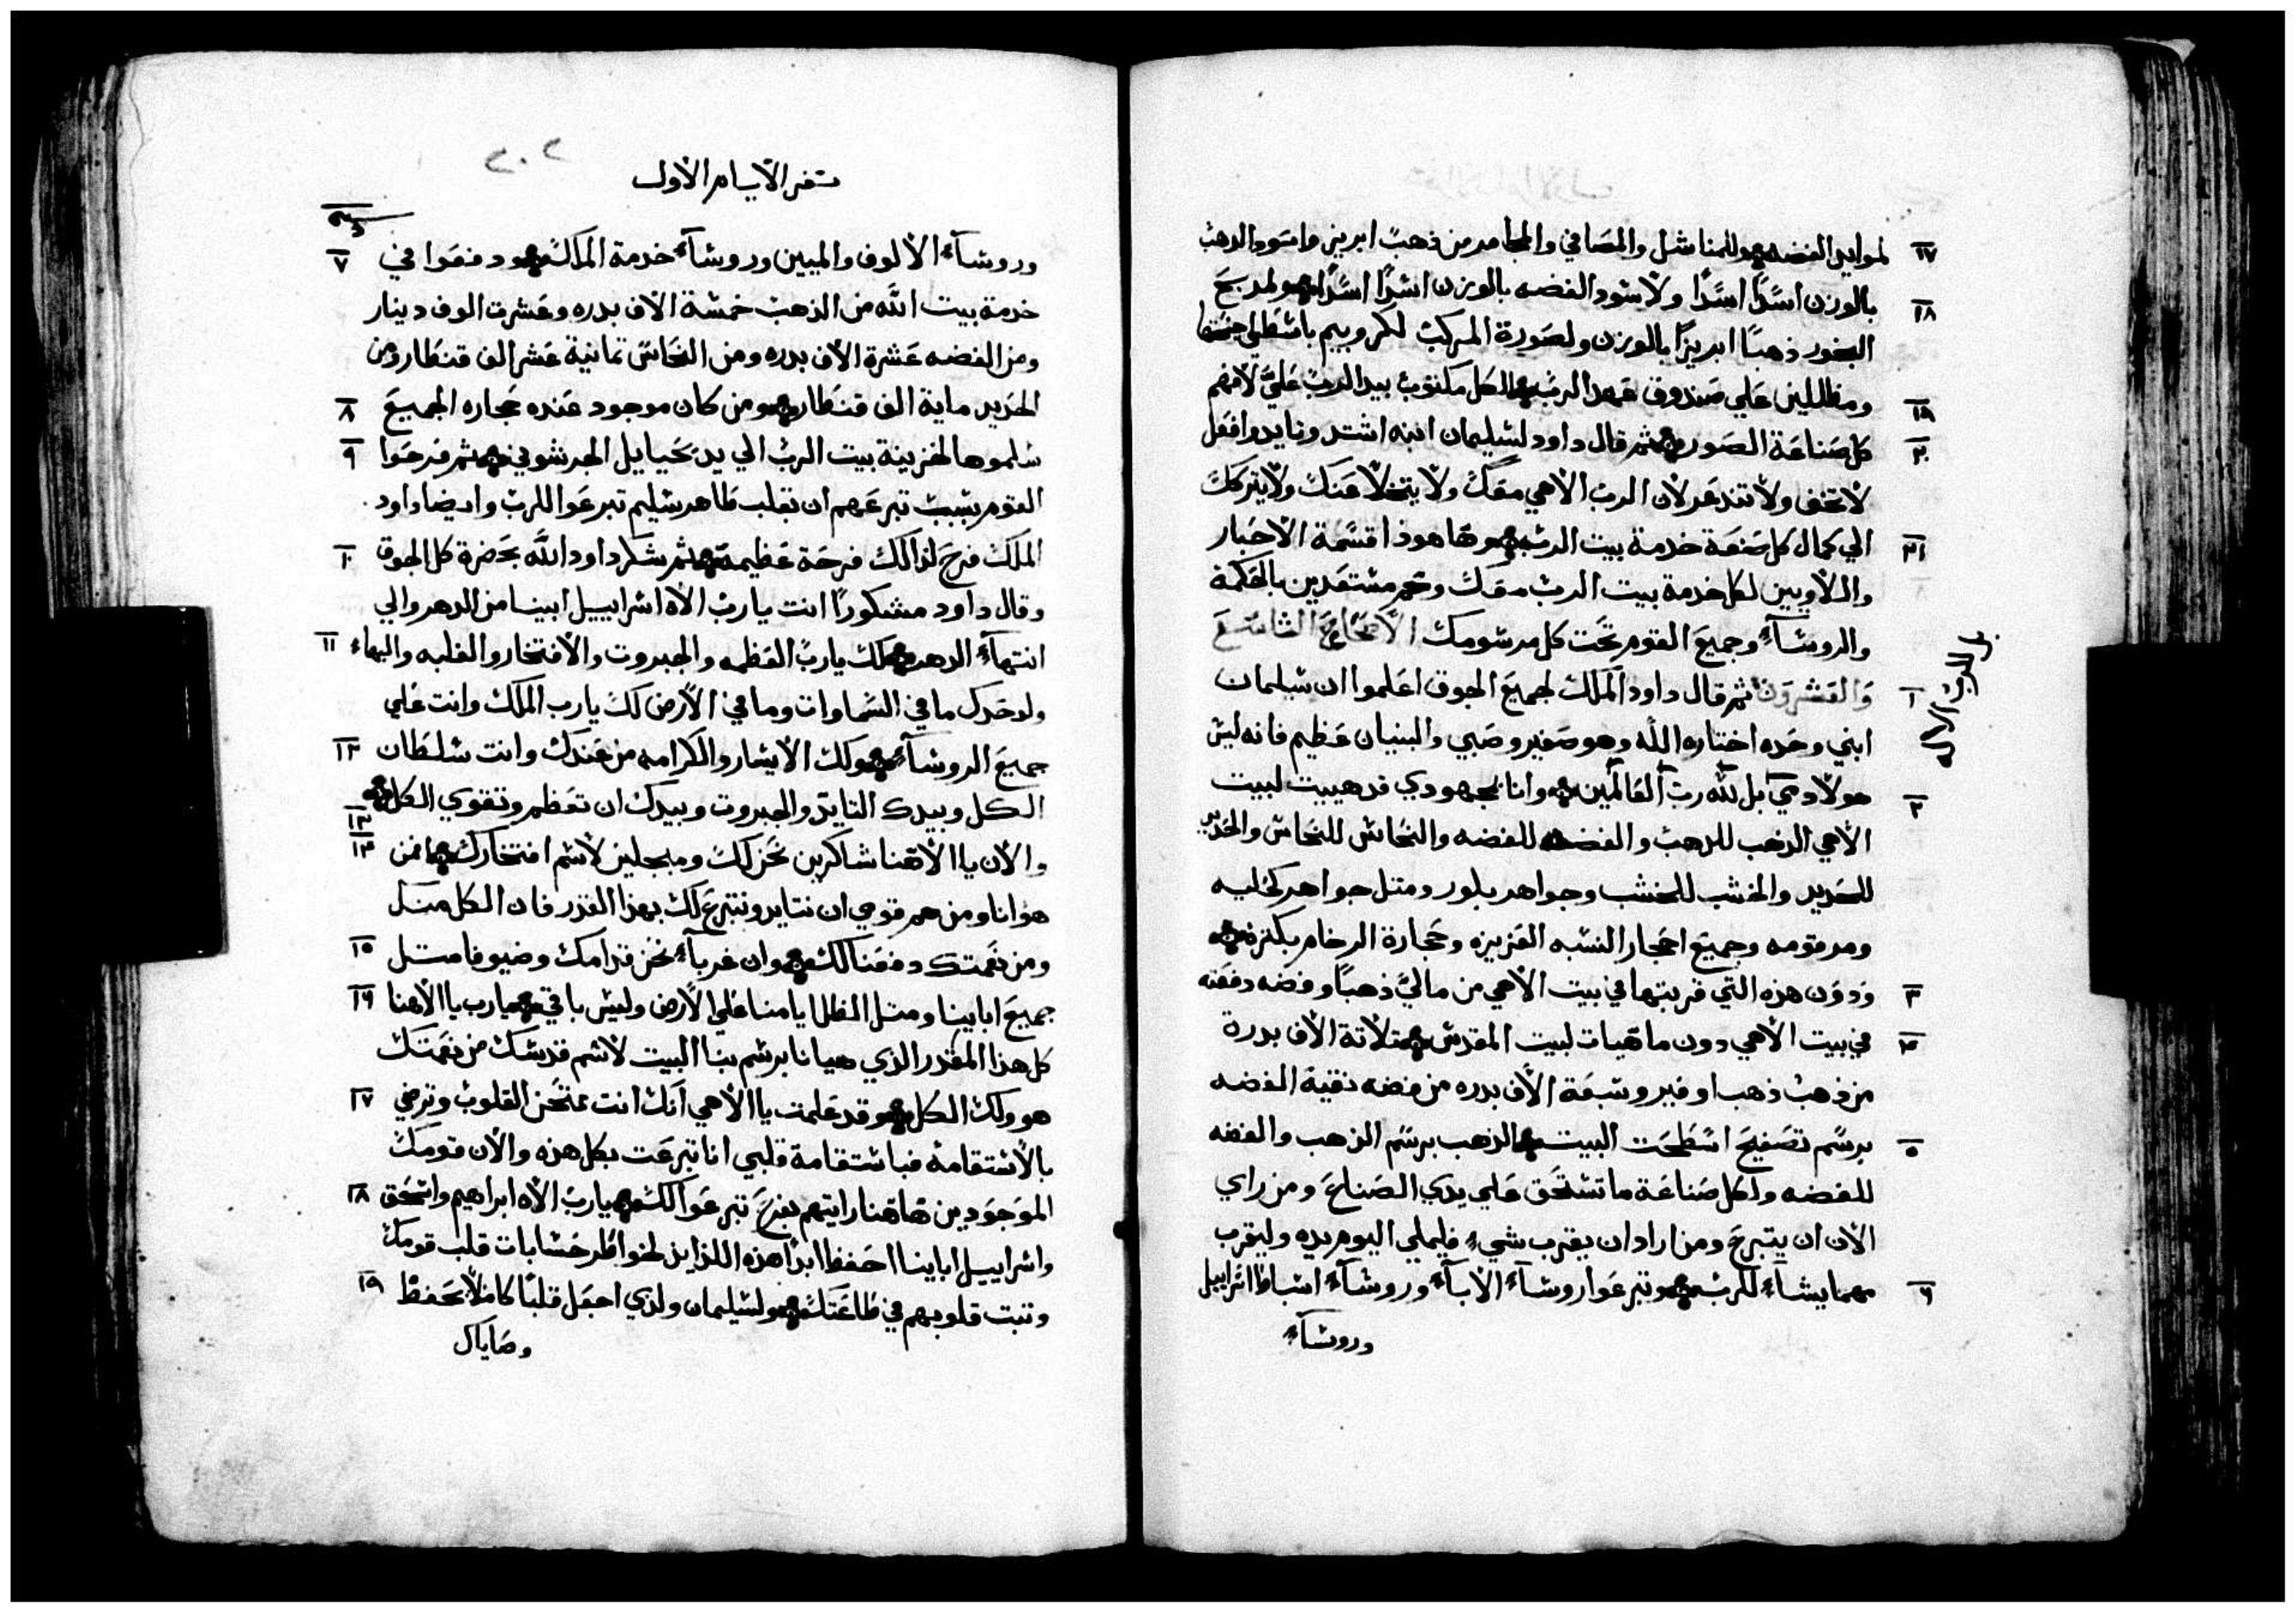 ١٧ لموايد الفضه وللمناشل والمصافي والمجامر من ذهب ابريز واسود الدهب
بالوزن اسدًا اسدًا ولاسود الفضه بالوزن اسدًا اسدًا ١٨ ولمدبح
البخور ذهبًا ابريزًا بالوزن ولصورة المركب لكروبيم باسطي اجنحتها
ومظللين علي صندوق عهد الرب ١٩ الكل مكتوب بيد الرب علي لافهم
كل صناعة الصور ٢٠ ثم قال داود لسليمان ابنه اشتد وتايد وافعل
لا تخف ولا تندعر لان الرب الاهي معك ولا يتخلا عنك ولا يتركك
الي كمال كل صنعة خدمة بيت الرب ٢١ وها هوذا قسمة الاحبار
واللاويين لكل خدمة بيت الرب معك وهم مستعدين بالحكمة
والروسآء وجميع القوم تحت كل مرسومك الاصحاح التاسع
والعشرون ١ ثم قال داود الملك لجميع الجوق اعلموا ان سليمان
ابني وحده اختاره الله وهو صغير وصبي والبنيان عظيم فانه ليس
هو لادمي بل لله رب العالمين ٢ وانا بمجهودي قد هييت لبيت
الرب الاله
الاهي الدهب للدهب والفضه للفضه والنحاس للنحاس والحديد
للحديد والخشب للخشب وجواهر بلور ومتل جواهر كحليه
ومرقومه وجميع احجار النسبه العزيزه وحجارة الرخام بكتره
٣ ودون هذه التي قربتها في بيت الاهي من مالي ذهبًا وفضه دفعته
في بيت الاهي دون ما هيات لبيت المقدس ٤ تلاتة الاف بدرة
من ذهب ذهب اوفير وسبعة الاف بدره من فضه نقية الفضه
برسم تصفيح اسطحت البيت ٥ الذهب برسم الذهب والفضه
للفضه ولكل صناعة ما تستحق علي يدي الصناع ومن راي
الان ان يتبرع ومن اراد ان يقرب شيء فليملي اليوم يده وليقرب
مهما يشاء للرب ٦ وتبرعوا روسآء الابآء وروسآء اسباط اسراييل
وروسآء
٢٠٢
سفر الايام الاول
وروسآء الالوف والميين وروسآء خدمة الملك ٧ ودفعوا في
خدمة بيت الله من الذهب خمسة الاف بدره وعشرت الوف دينار
ومن الفضه عشرة الاف بدره ومن النحاس تمانية عشر الف قنطار ومن
الحديد ماية الف قنطار ٨ ومن كان موجود عنده حجاره الجميع
سلموها لخزينة بيت الرب الي يد يحيايل الجرشوني ٩ ثم فرحوا
القوم بسبب تبرعهم ان بقلب طاهر سليم تبرعوا للرب وايضا داود
الملك فرح لذالك فرحة عظيمة ١٠ ثم شكر داود الله بحضرة كل الجوق
وقال داود مشكورًا انت يارب الاه اسراييل ابينا من الدهر والي
انتهاء الدهر ١١ لك يارب العظمه والجبروت والافتخار والغلبه والبهاء
ولوحدك ما في السماوات وما في الارض لك يارب الملك وانت علي
جميع الروسآء ١٢ ولك الايسار والكرامه من عندك وانت سلطان
الكل وبيدك التايد والجبروت وبيدك ان تعظم وتقوي الكل
١٣ والان يا الاهنا شاكرين نحن لك ومبجلين لاسم افتخارك ١٤ فمن
هو انا ومن هم قومي ان نتايد ونتبرع لك بهذا القدر فان الكل منك
ومن نعمتك دفعنا لك ١٥ وان غربآء نحن قدامك وضيوفا متل
جميع ابايينا ومتل الظل ايامنا علي الارض وليس باقي ١٦ يارب يا الاهنا
كل هذا المقدر الذي هيانا برسم بنا البيت لاسم قدسك من نعمتك
هو ولك الكل ١٧ وقد علمت يا الاهي انك انت تمتحن القلوب وترضي
بالاستقامة فباستقامة قلبي انا تبرعت بكل هذه والان قومك
الموجودين هاهنا رايتهم بفرح تبرعوا لك ١٨ يارب الاه ابراهيم واسحق
واسراييل ابايينا احفظ ابدًا هذه اللذايذ لخواطر حسابات قلب قومك
وتبت قلوبهم في طاعتك ١٩ ولسليمان ولدي اجعل قلبًا كاملًا بحفظ
وصاياك